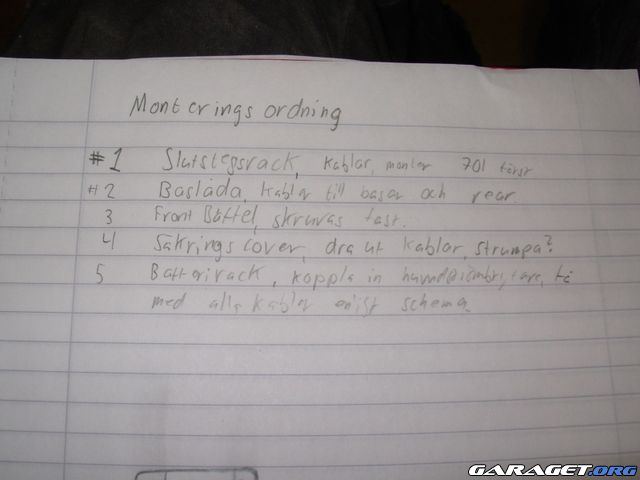 Monterings ordning
#1 Slutstegsrack, kablar, monter 701 först
#2 Baslåda, kablar till basar och rear.
3 Front Baffel, skruvas fast.
4 Säkrings cover, dra ut kablar, strumpa?
5 Batterirack, koppla in
med alla kablar enligt schema.
GARAGET.ORG